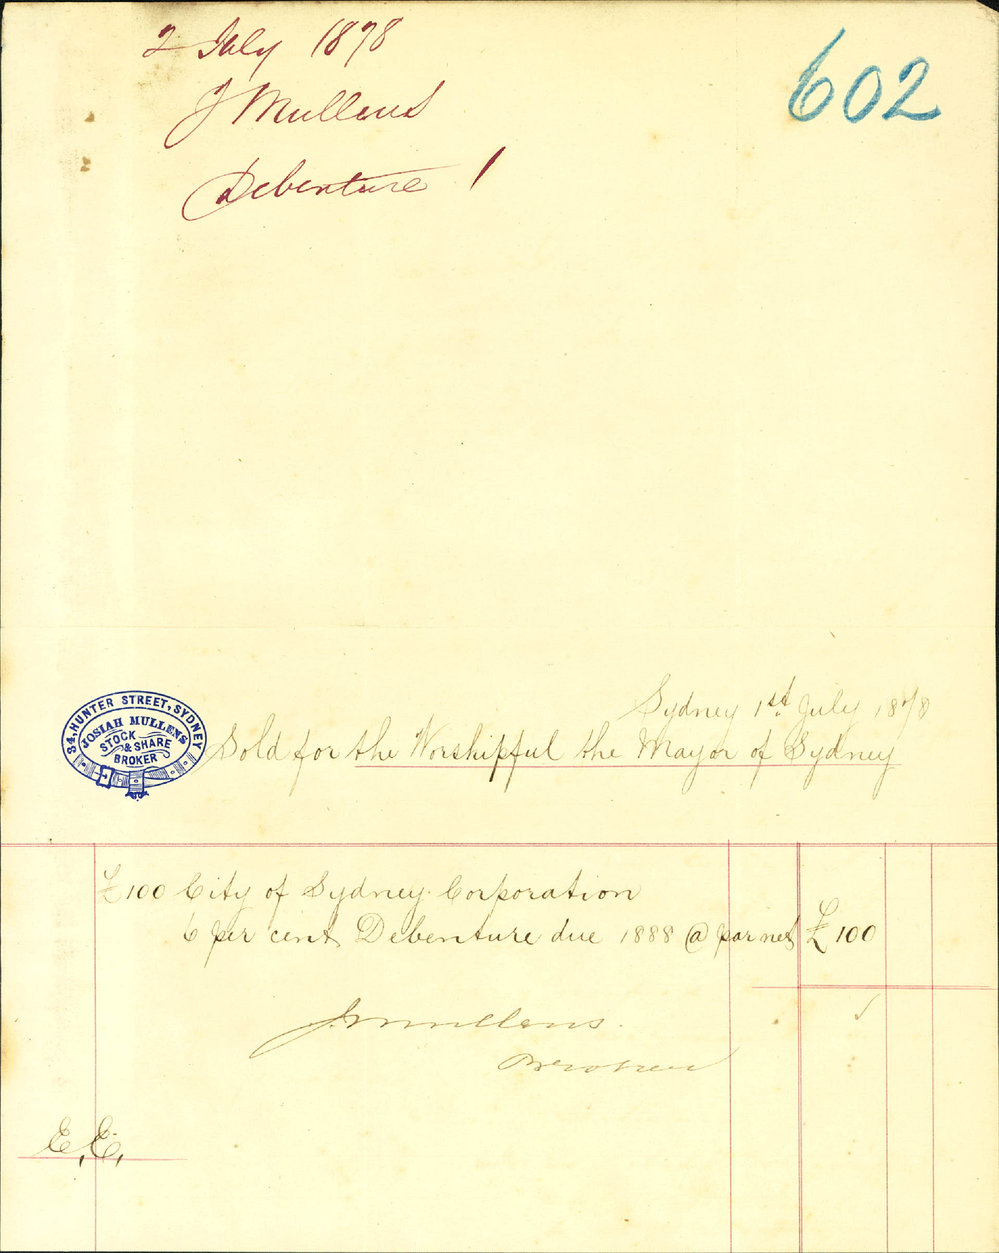 2 July 1878
602
J Mullens
Debenture 1
Sydney 1st July 1878
34, HUNTER STREET, SYDNEY
JOSIAH MULLENS
STOCK
& SHARE
BROKER
Sold for the Worshipful the Mayor of Sydney
£100 City of Sydney Corporation
6 per cent Debenture due 1888 @ par net £100
J Mullens.
Broker
E.E.